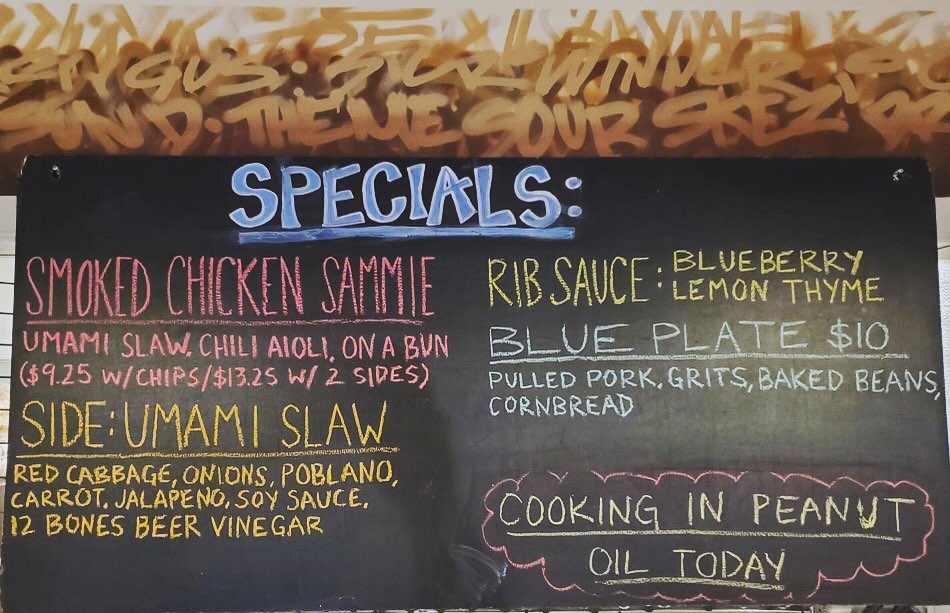 SUN D. THEME SOUR SKEZ
SPECIALS:
SMOKED CHICKEN SAMMIE
UMAMI SLAW, CHILI AIOLI, ON A BUN
($9.25 W/CHIPS/$13.25 W/ 2 SIDES)
SIDE: UMAMI SLAW
RED CABBAGE, ONIONS, POBLANO,
CARROT, JALAPENO, SOY SAUCE,
12 BONES BEER VINEGAR
RIB SAUCE: BLUEBERRY
LEMON THYME
BLUE PLATE $10
PULLED PORK, GRITS, BAKED BEANS,
CORNBREAD
COOKING IN PEANUT
OIL TODAY